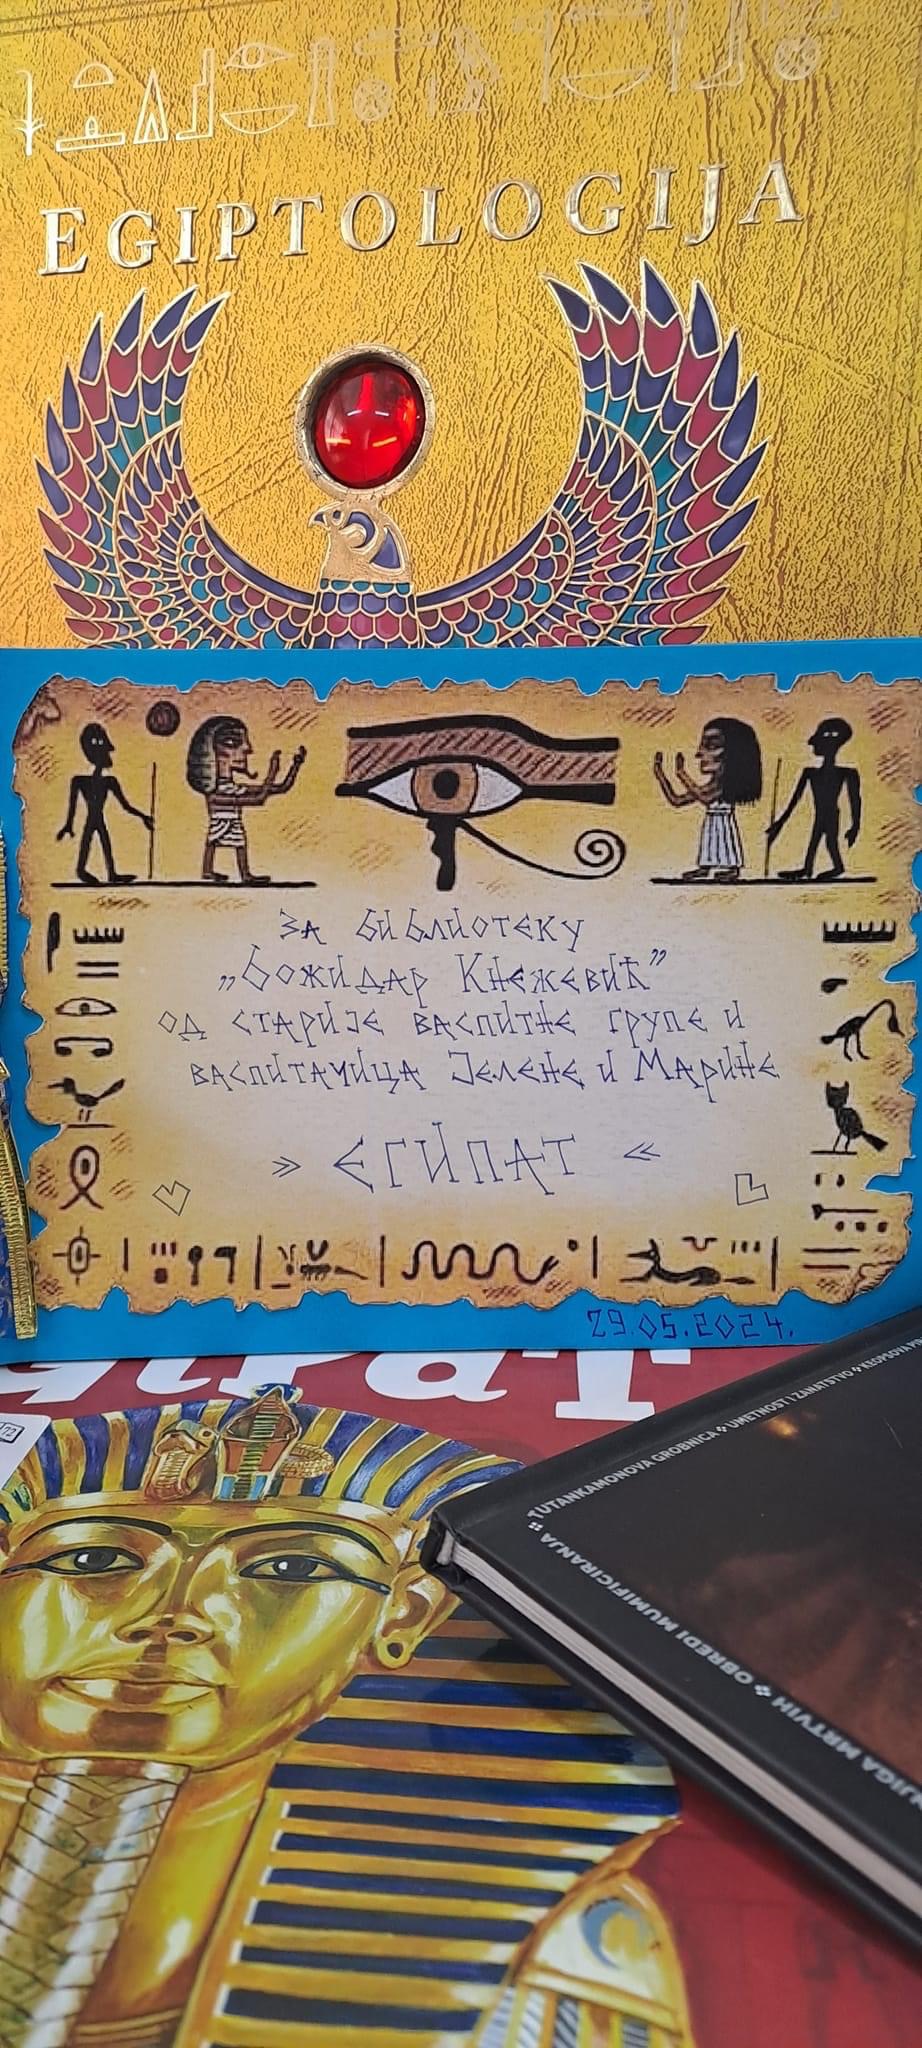 EGIPTOLOGIJA
За библиотеку
„Божидар Кнежевић”
од старије васпитне групе и
васпитачица Јелене и Марине
» ЕГИПАТ «
29.05.2024.
72
TUTANKAMONOVA GROBNICA ❖ UMETNOST I ZANATSTVO ❖ KEOPSOVA
OBREDI MUMIFICIRANJA ❖ MRTVIH